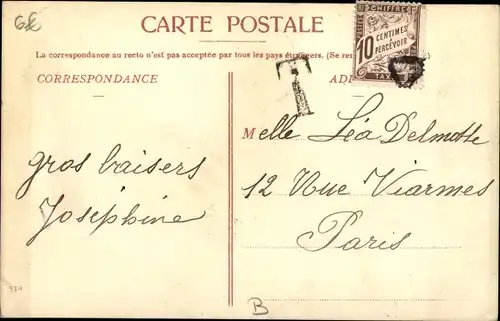 6€
CARTE POSTALE
La correspondance au recto n'est pas acceptée par tous les pays étrangers. (Se ren
CORRESPONDANCE
AD
T
POSTES
CHIFFRE
10 CENTIMES
À PERCEVOIR
TAX
gros baisers
Joséphine
Melle Léa Delmotte
12 Rue Viarmes
Paris
930
B